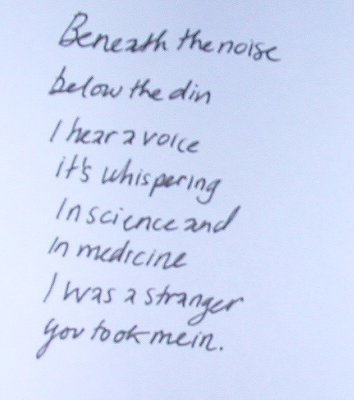 Beneath the noise
below the din
I hear a voice
it's whispering
In science and
in medicine
I was a stranger
you took me in.